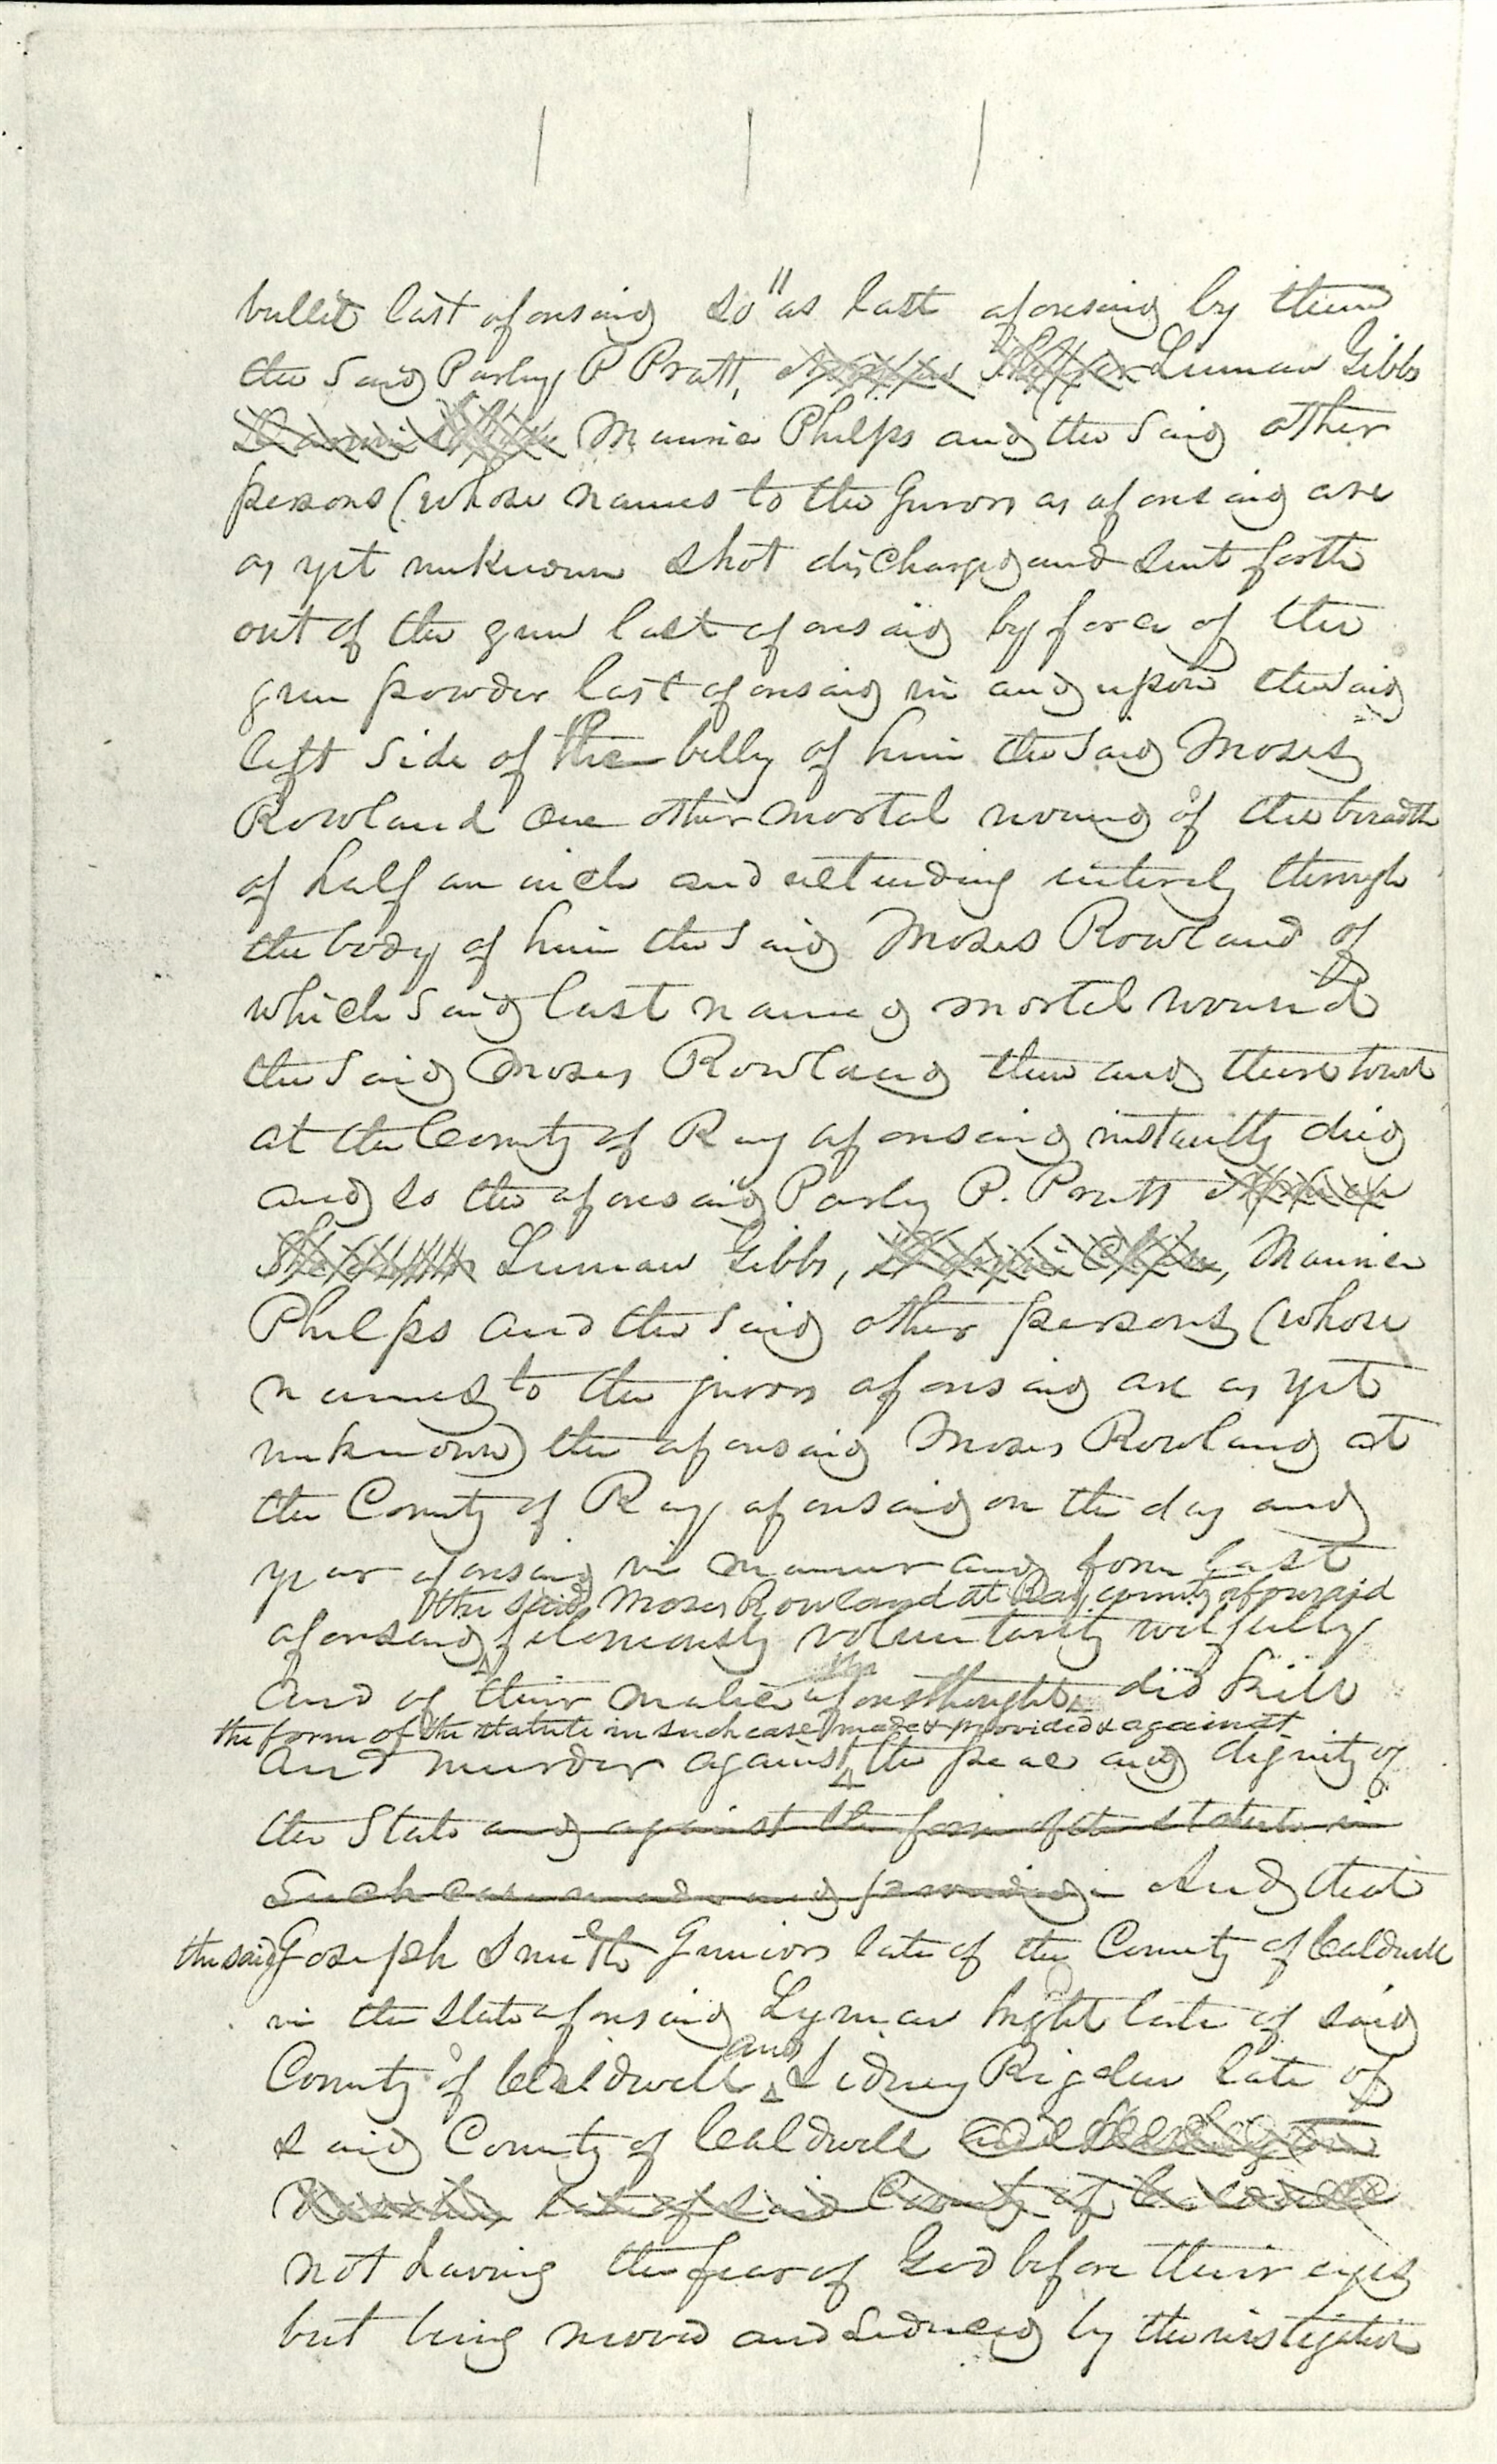 bullet last aforesaid so as last aforesaid by them
the said Parley P Pratt, Norman Shearer Luman Gibbs
Darwin Chase Maurice Phelps and the said other
persons (whose names to the Jurors as aforesaid are
as yet unknown shot discharged and sent forth
out of the gun last aforesaid by force of the
gun powder last aforesaid in and upon the said
left side of the belly of him the said Moses
Rowland one other mortal wound of the breadth
of half an inch and extending entirely through
the body of him the said Moses Rowland of
which said last named mortal wound
the said Moses Rowland then and there towit
at the County of Ray aforesaid instantly died
and so the aforesaid Parley P. Pratt Norman
Shearer Luman Gibbs, Darwin Chase, Maurice
Phelps and the said other persons (whose
names to the jurors aforesaid are as yet
unknown) the aforesaid Moses Rowland at
the County of Ray aforesaid on the day and
year aforesaid in manner and form last
the said Moses Rowland at Ray county aforesaid
aforesaid feloniously voluntarily wilfully
and of their malice aforethought did kill
the form of the statute in such case made & provided & against
and murder against the peace and dignity of
the State and against the form of the statute in
such case made and provided. And that
the said Joseph Smith Junior late of the County of Caldwell
in the State aforesaid Lyman Wight late of said
and
County of Caldwell Sidney Rigdon late of
said County of Caldwell
late of said County of Caldwell
not having the fear of God before their eyes
but being moved and seduced by the instigation